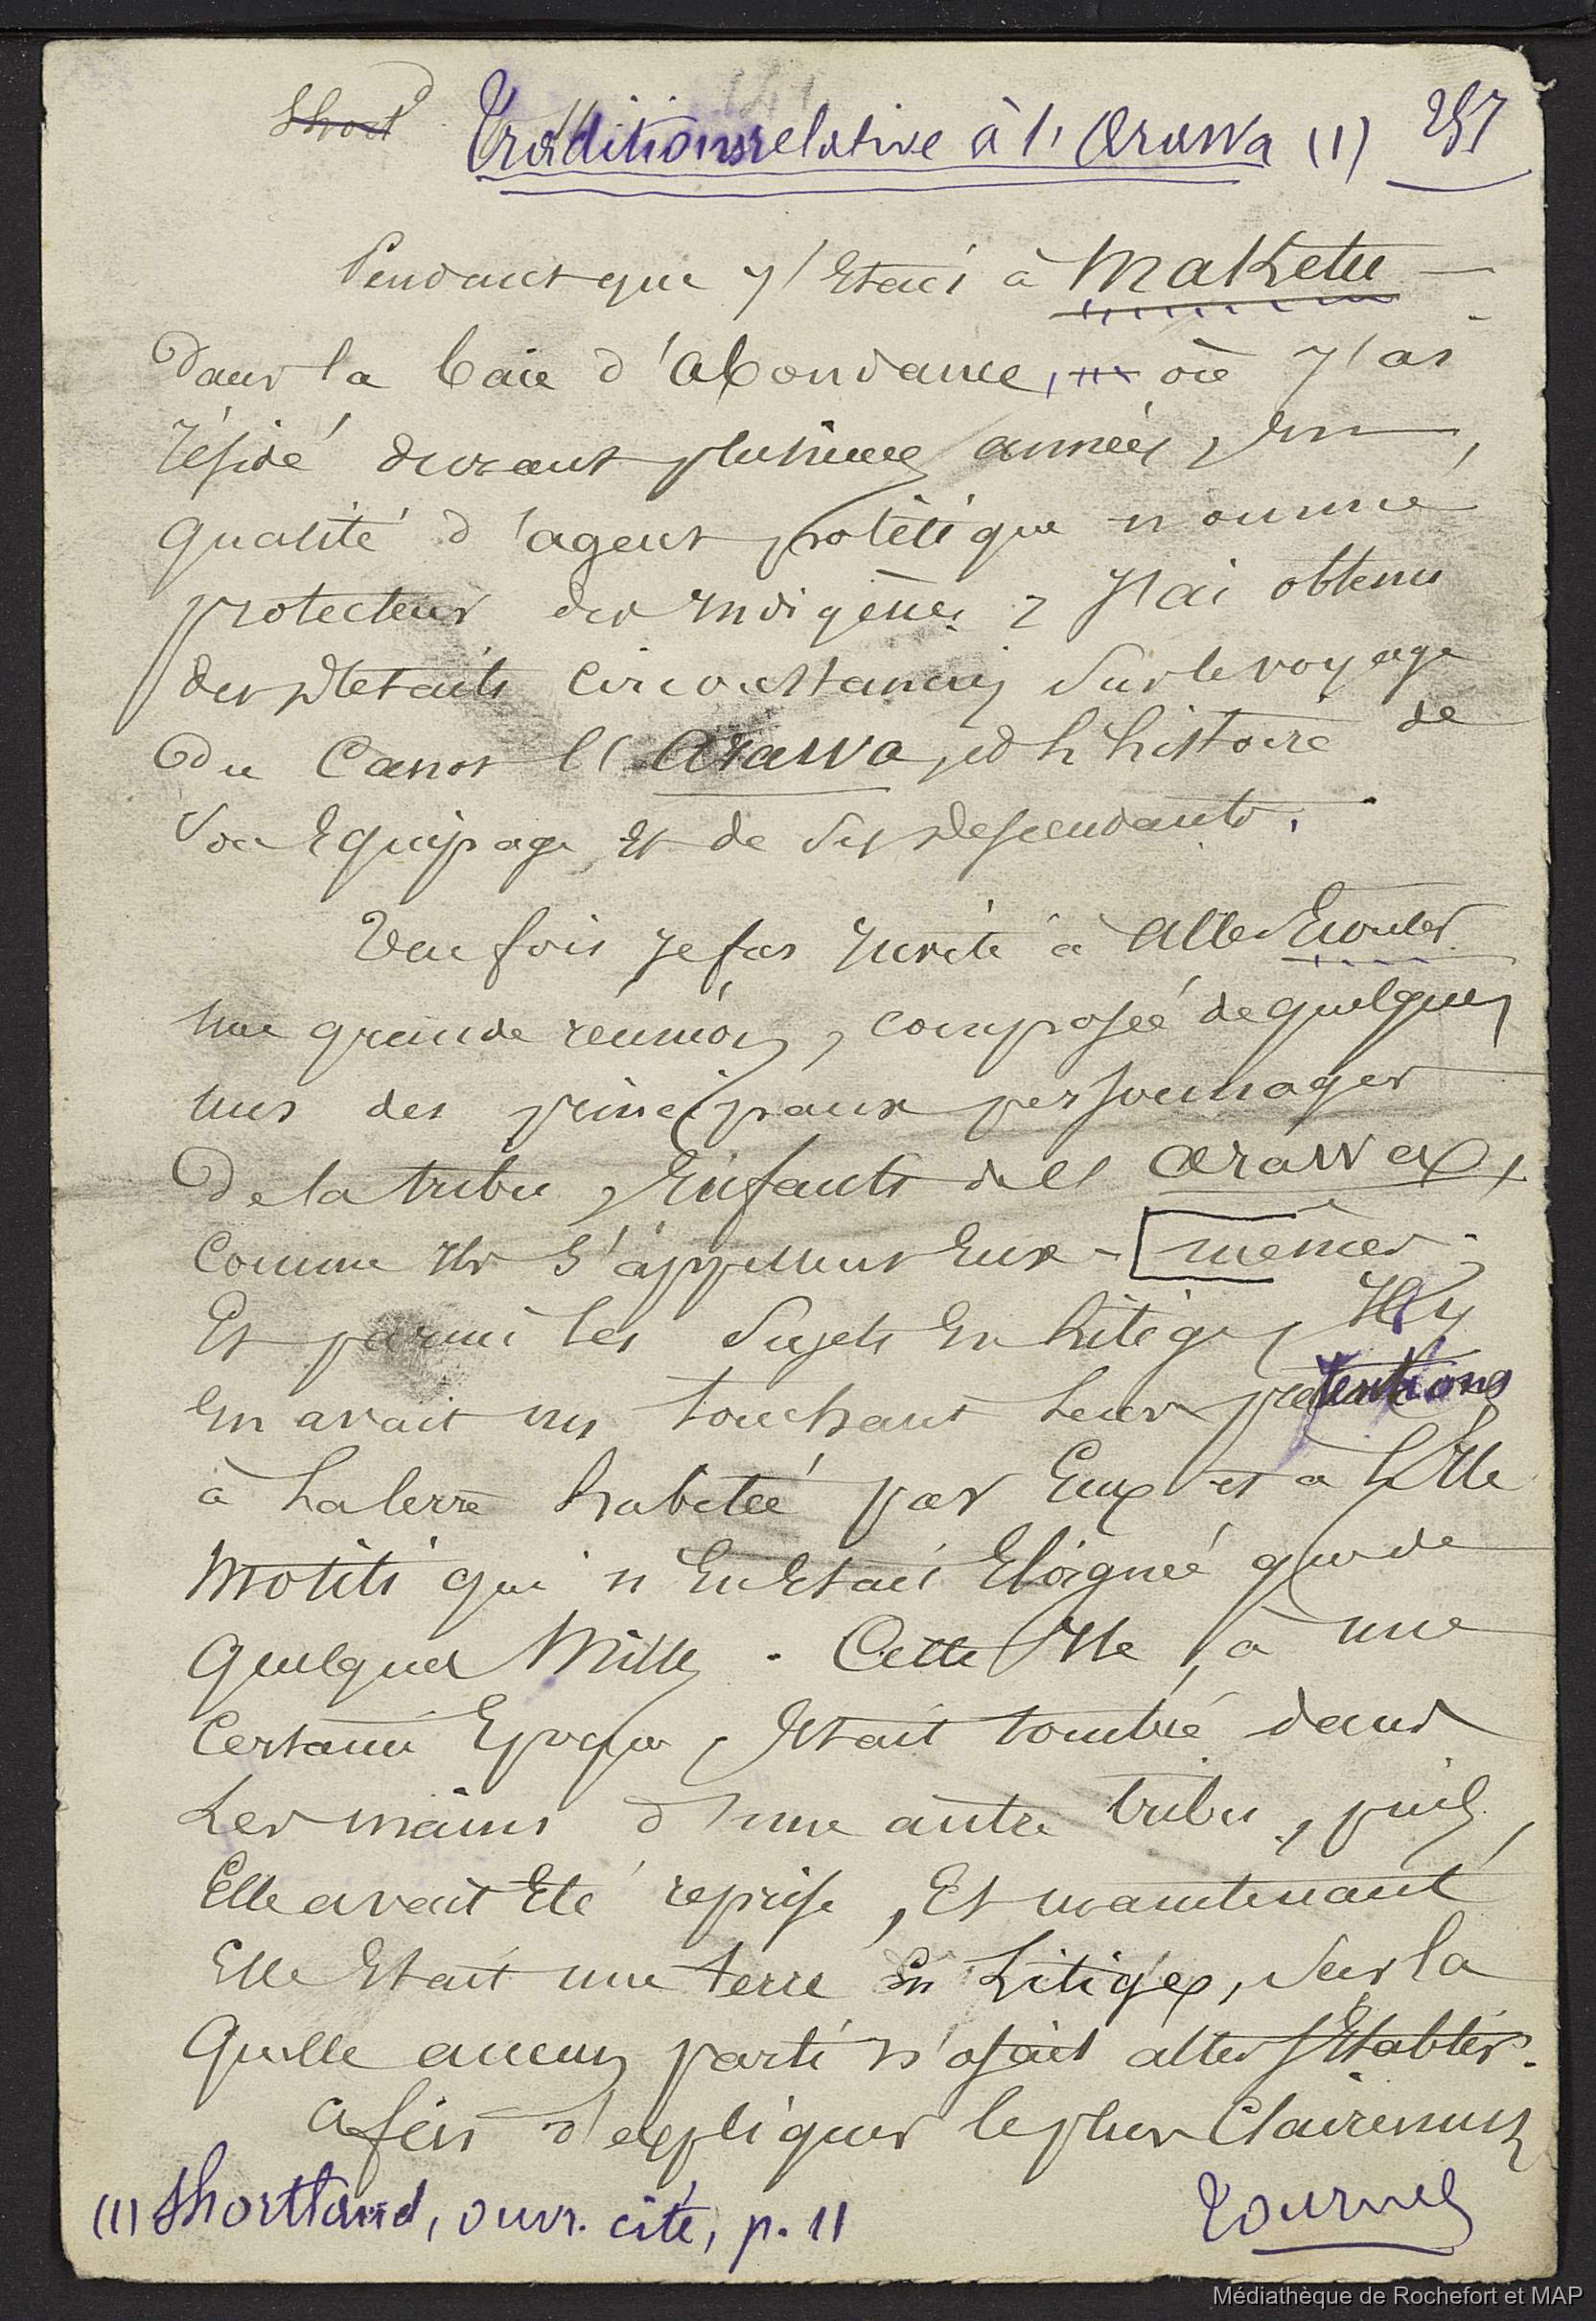 Short
Traditions relative à l'Arawa (1) 257
Pendant que j'étais à Maketu
dans la baie d'Abondance, où j'ai
résidé durant plusieurs années, en
qualité d'agent politique nommé
protecteur des indigènes, j'ai obtenu
des détails circonstanciés sur le voyage
du Canot l'Arawa, et l'histoire de
son Equipage, et de ses descendants.
Une fois je fus invité à aller Ecouter
une grande réunion, composée de quelques
uns des principaux personnages
de la tribu, Enfants de l'Arawa,
comme ils s'appellent Eux-mêmes.
Et parmi les Sujets En Litige, Il y
En avait un touchant leurs prétentions
à la terre habitée par Eux et à l'Ile
Motiti qui n'En Etait Eloignée que de
quelques Milles. Cette Ile, à une
Certaine Epoque, Etait tombée dans
les mains d'une autre tribu, puis,
Elle avait Eté reprise, Et maintenant
Elle Etait une terre En Litige, sur la
quelle aucun parti n'osait aller s'Etablir.
Afin d'expliquer le plus Clairement
(1) Shortland, ouvr. cité, p. 11
Tournez
Médiathèque de Rochefort et MAP